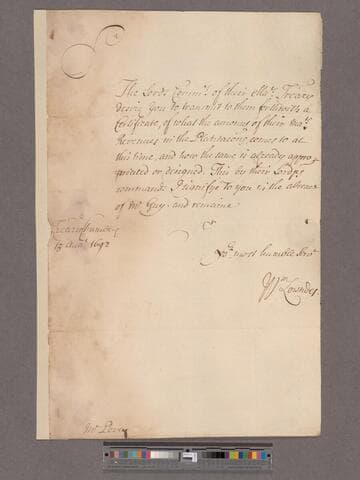 Sr
The Lords Comm:rs of their Ma:ts Treary
desire you to transmit to them forthwith a
Certificate of what the amount of their Ma:ts
Revenues in the Plantations comes to at
this time, and how the same is already appro-
priated or designed. This by their Lordps
command I signifie to you in the absence
of Mr Guy and remaine
Sr
Yor most humble Servt
Wm Lowndes
Treary Chambers
15 Augt 1692
Mr Povey